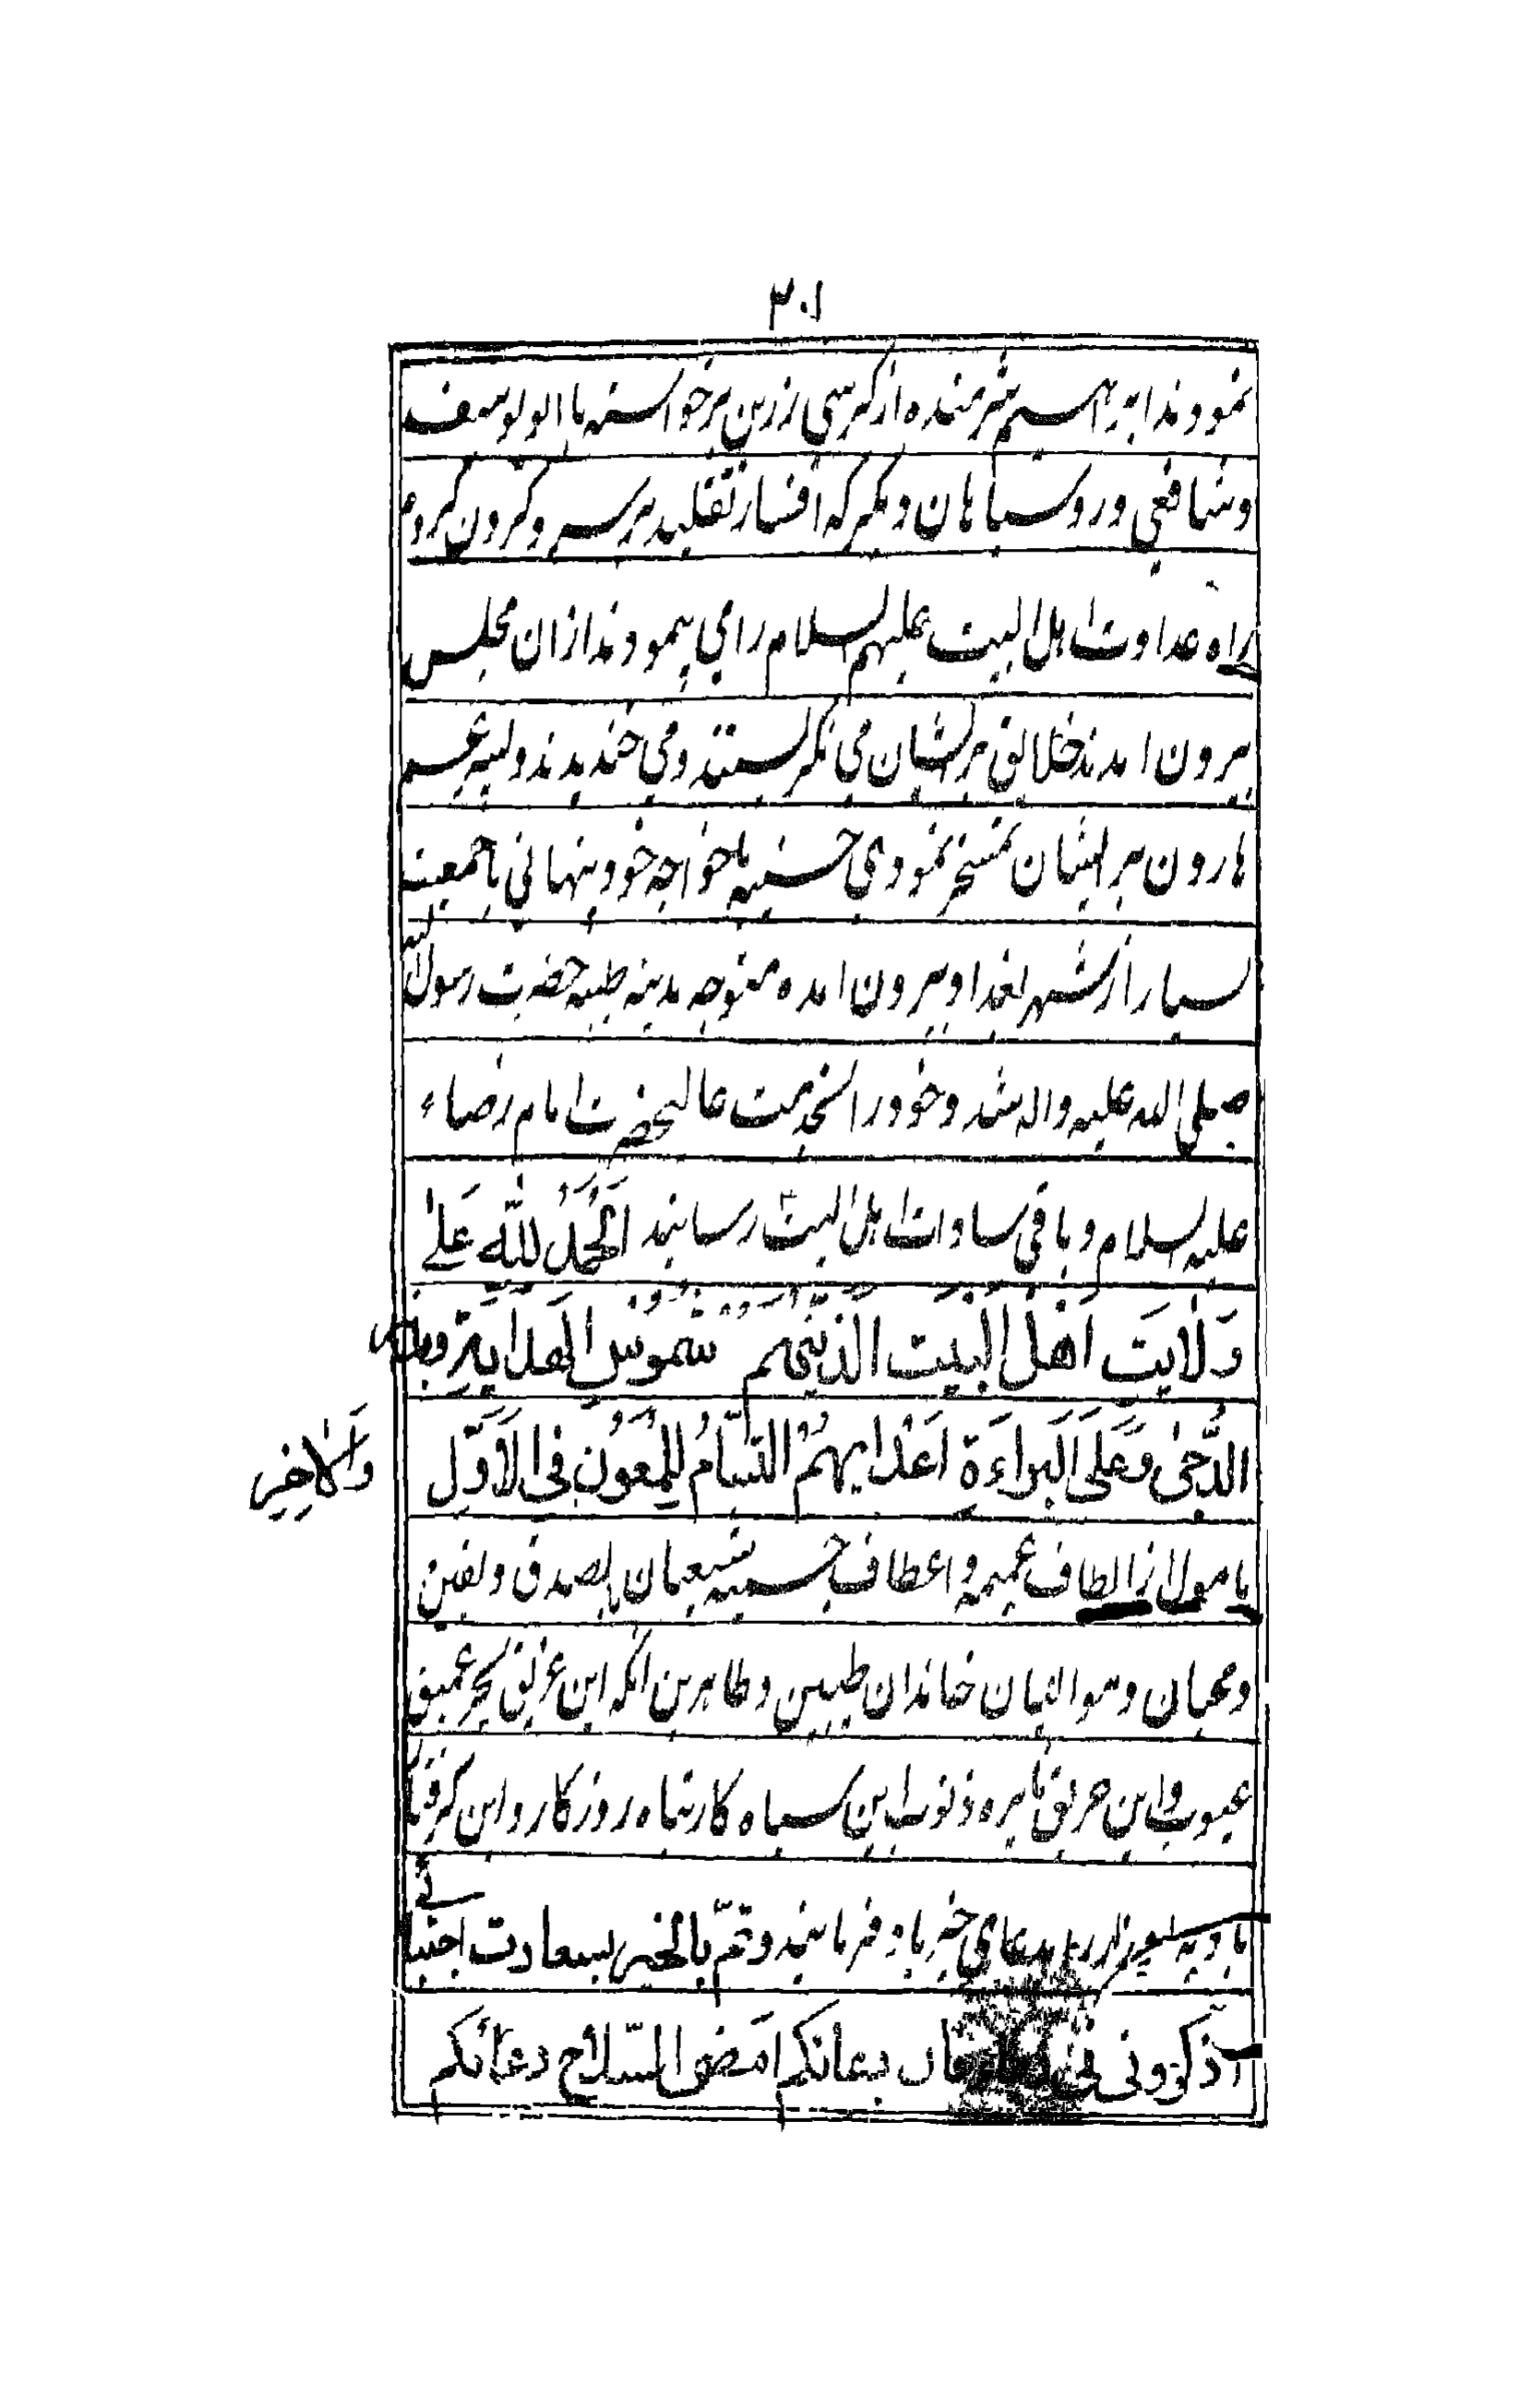 ٣٠١
نمودند ابراهیم شرمنده از کرسی زرین برخواسته با ابو یوسف
و شافعی و رو سیاهان دیگر که افسار تقلید بر سر و گردن کرده
راه عداوت اهل البیت علیهم السلام را می پیمودند از ان مجلس
بیرون امدند خلایق بر ایشان می نگریستند و می خندیدند و پسر عم
هارون بر ایشان تمسخر نمودی حسنیه با خواجه خود پنهانی با جمعیت
بسیار از شهر بغداد بیرون امده متوجه مدینه طیبه حضرت رسول الله
صلی الله علیه واله شد و خود را بخدمت عالیحضرت امام رضاء
علیه السلام و باقی سادات اهل البیت رسانید اَلْحَمْدُ لِلّٰهِ عَلیٰ
وَلایَتِ اَهْلِ الْبَیْتِ الَّذینَ هُم شُمُوْسُ الْهِدایَةِ
الدُّجیٰ وَ عَلَی الْبَراءَةِ اَعْدایِهِمُ فی الْاَوَّلِ
وَالْاٰخِرِ
یا مولا از الطاف عمیمه و اعطاف جسیمه شیعیان بصدق و یقین
و محبان و موالیان خاندان طیبین و طاهرین انکه این غریق بحر عمیق
عیوب و این حریق نایره ذنوب این سیاه کار تباه روزگار و این گرفتار
بدعای خیر یاد فرمایند و تمّ بالخیر بسعادت
اذکرونی فی بدعائکم امضی السّلاح دعائکم